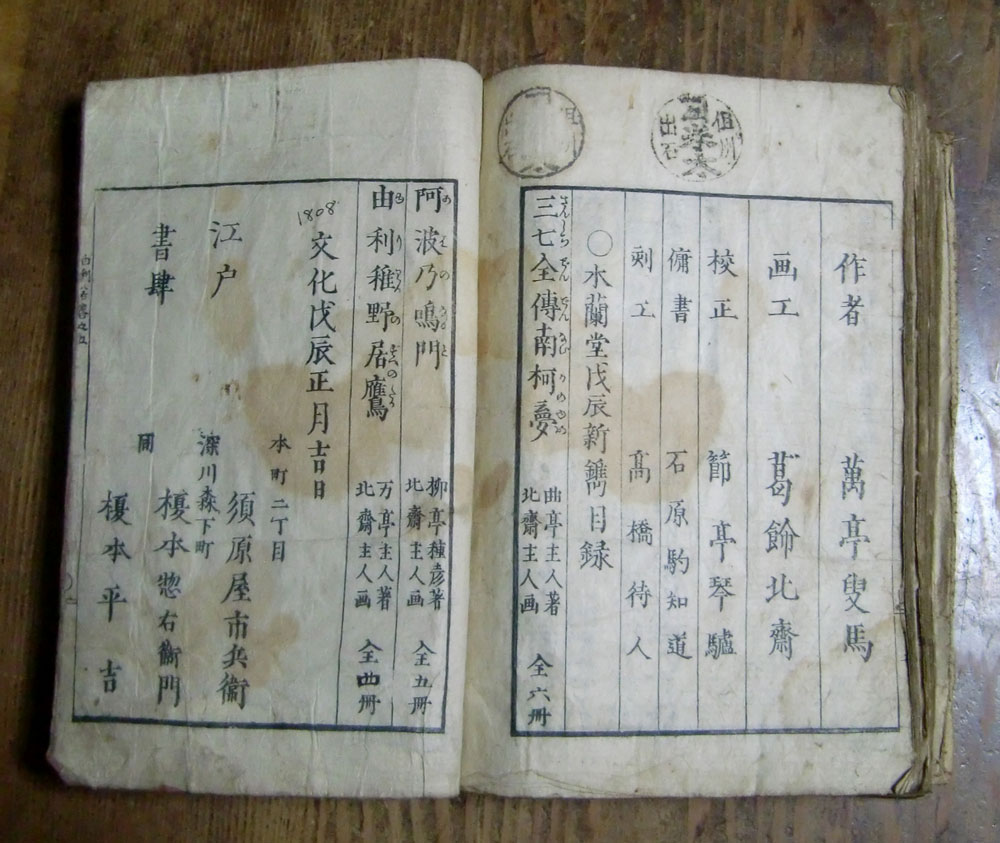 作者 萬亭叟馬
画工 葛飾北齋
校正 節亭琴驢
傭書 石原駒知道
剞工 髙橋待人
〇水蘭堂戊辰新鐫目録
三七全傳南柯夢 曲亭主人著 北齋主人画 全六冊
阿波乃鳴門 柳亭種彦著 北齋主人画 全五冊
由利稚野居鷹 万亭主人著 北齋主人画 全冊
1808
文化戊辰正月吉日
江戸
書肆
本町二丁目
須原屋市兵衞
深川森下町
榎本惣右衞門
同
榎本平吉
但州
出石